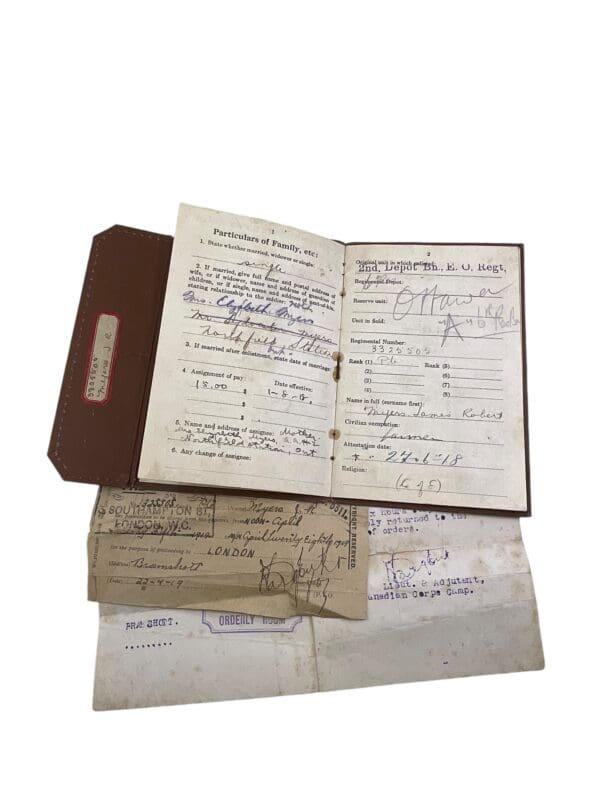 3325505
Myers J R
1
Particulars of Family, etc:
1. State whether married, widower or single:
single
2. If married, give full name and postal address of
wife, or if widower, name and address of guardian of
children, or if single, name and address of next-of-kin,
stating relationship to the soldier:
Mrs. Elizabeth Myers
Northfield Station
Ont
3. If married after enlistment, state date of marriage:
4. Assignment of pay: Date effective:
$ 15.00 1-8-18.
$
$
5. Name and address of assignee: Mother
Mrs Elizabeth Myers,
Northfield Station, Ont
6. Any change of assignee:
2
Original unit in which enlisted:
2nd. Depot Bn., E. O. Regt,
Regimental Depot:
Reserve unit: Ottawa
Unit in field: "A"
Regimental Number:
3325505
Rank (1) Pte (5)
(2) (6)
(3) (7)
(4) (8)
Name in full (surname first)
Myers James Robert
Civilian occupation:
farmer
Attestation date:
27-6-18
Religion:
(C of E)
SOUTHAMPTON ST.
LONDON, W.C.
Myers J. R.
noon April
April twenty Eighth 1919
for the purpose of proceeding to LONDON
(Station) Bramshott
(Date) 22-4-19
COPYRIGHT RESERVED.
hours
returned to the
of orders.
Lieut. & Adjutant,
Canadian Corps Camp.
ORDERLY ROOM
BRAMSHOTT.